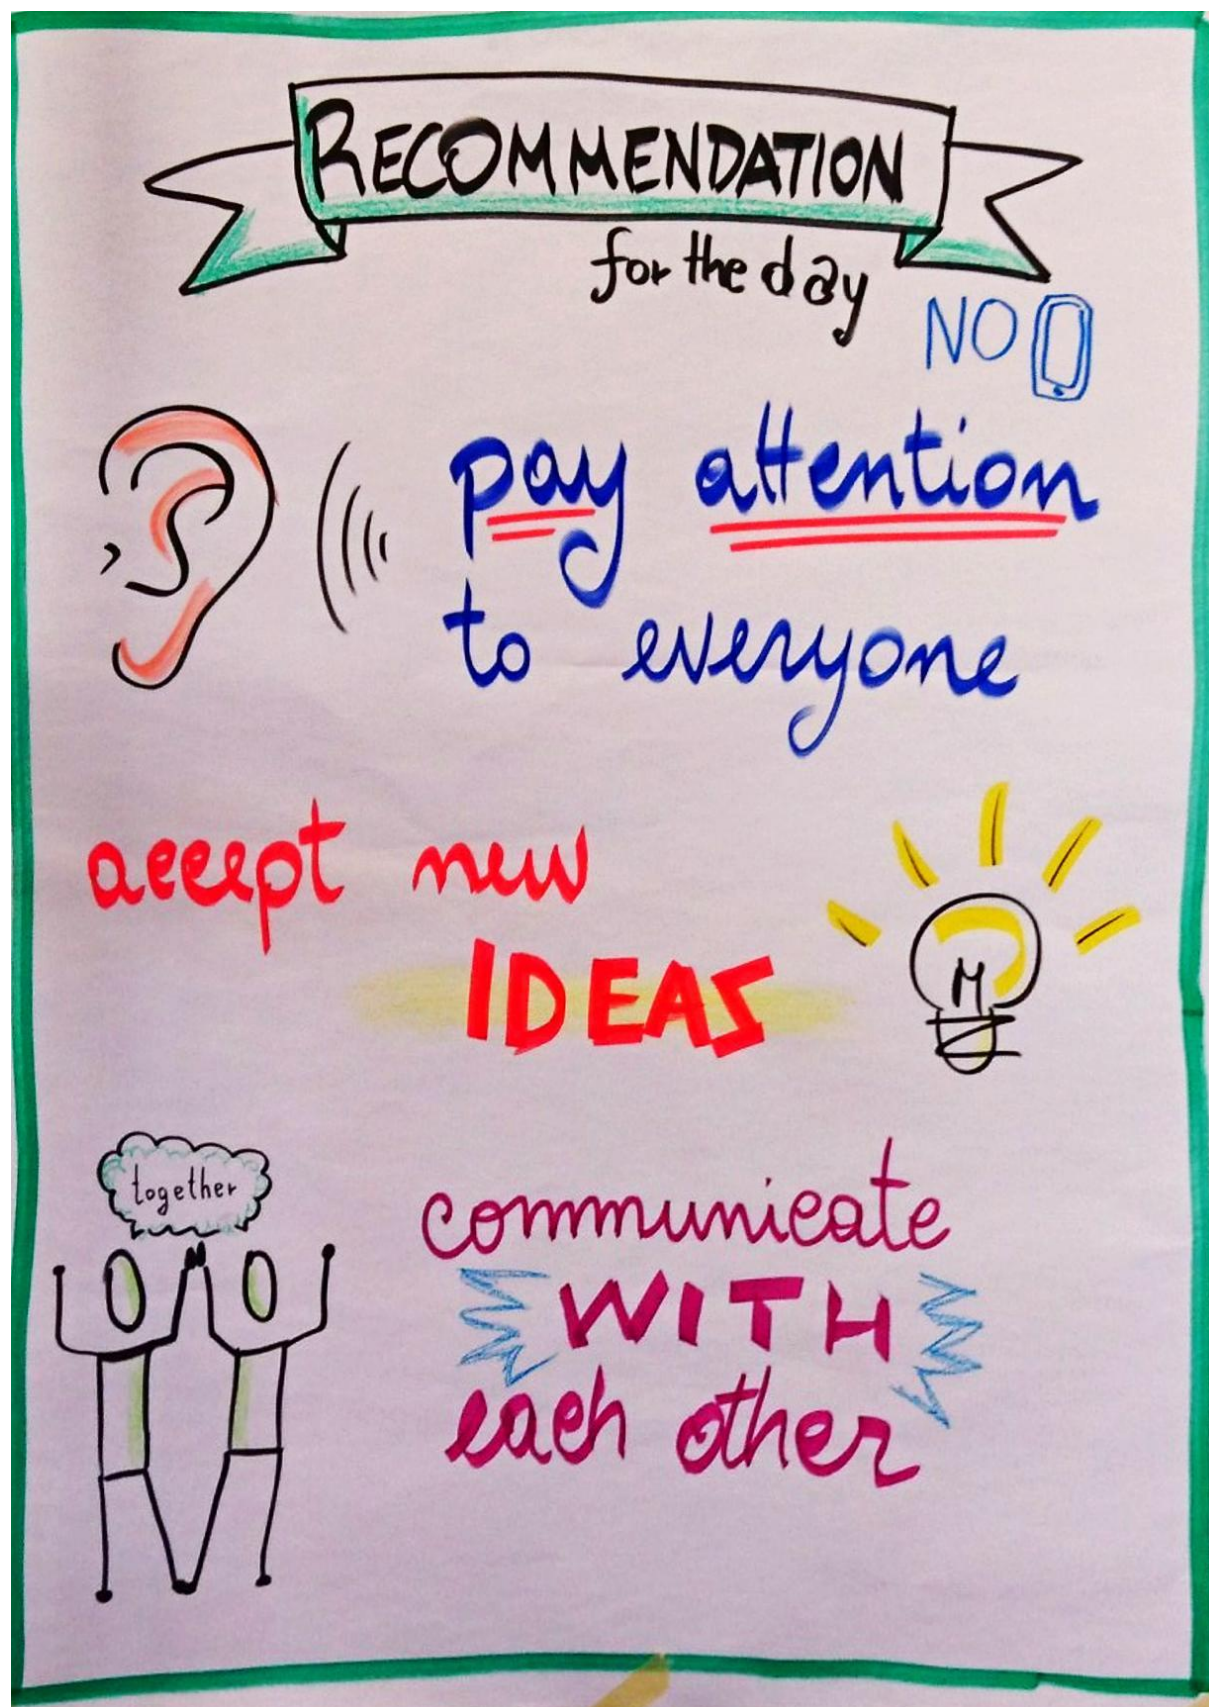 RECOMMENDATION
for the day
NO
pay attention
to everyone
accept new
IDEAS
together
communicate
WITH
each other